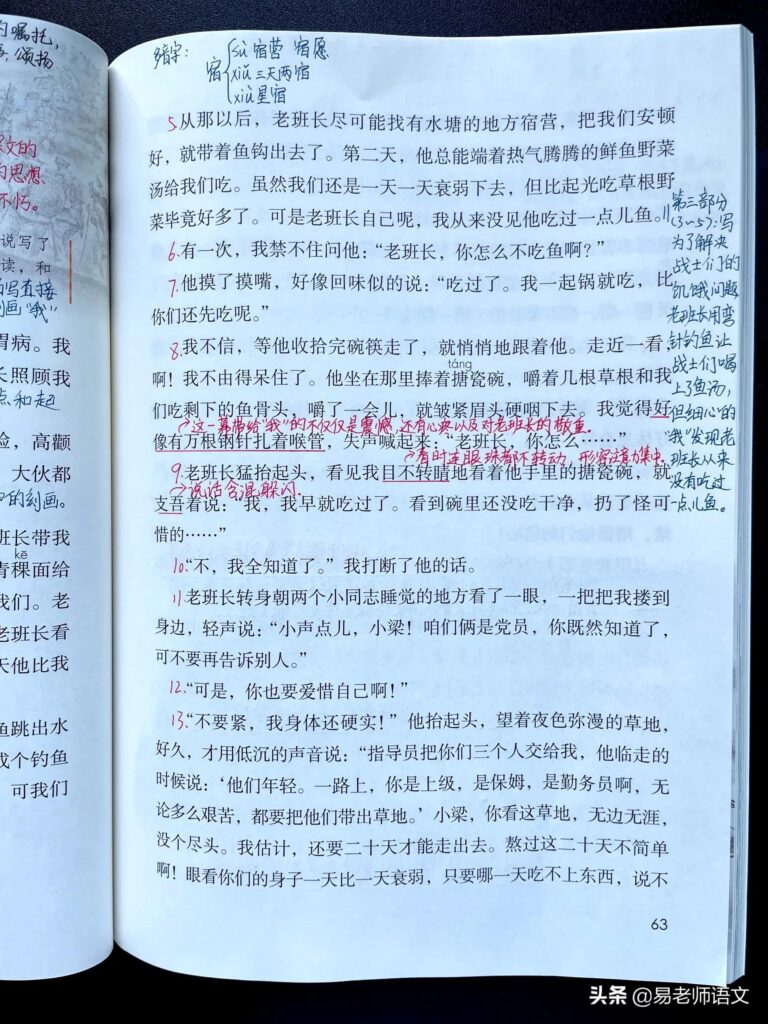 的嘱托，
颂扬
文的
的思想
不朽。
说写了
读，和
写直接
刻画“我”
胃病。我
长照顾我
点和起
脸，高颧
大伙都
的刻画。
班长带我
kē
青稞面给
我们。老
老班长看
天他比我
鱼跳出水
成个钓鱼
可我们
多音字：
宿
sù 宿营 宿愿
xiǔ 三天两宿
xiù 星宿
5.从那以后，老班长尽可能找有水塘的地方宿营，把我们安顿
好，就带着鱼钩出去了。第二天，他总能端着热气腾腾的鲜鱼野菜
汤给我们吃。虽然我们还是一天一天衰弱下去，但比起光吃草根野
菜毕竟好多了。可是老班长自己呢，我从来没见他吃过一点儿鱼。//
6.有一次，我禁不住问他：“老班长，你怎么不吃鱼啊？”
7.他摸了摸嘴，好像回味似的说：“吃过了。我一起锅就吃，比
你们还先吃呢。”
8.我不信，等他收拾完碗筷走了，就悄悄地跟着他。走近一看，
táng
啊！我不由得呆住了。他坐在那里捧着搪瓷碗，嚼着几根草根和我
们吃剩下的鱼骨头，嚼了一会儿，就皱紧眉头硬咽下去。我觉得好
这一幕带给“我”的不仅仅是震撼，还有心疼以及对老班长的敬重。
像有万根钢针扎着喉管，失声喊起来：“老班长，你怎么……”
有时连眼珠都不转动，形容注意力集中。
9.老班长猛抬起头，看见我目不转睛地看着他手里的搪瓷碗，就
说话含混躲闪。
支吾着说：“我，我早就吃过了。看到碗里还没吃干净，扔了怪可
惜的……”
10.“不，我全知道了。”我打断了他的话。
11.老班长转身朝两个小同志睡觉的地方看了一眼，一把把我搂到
身边，轻声说：“小声点儿，小梁！咱们俩是党员，你既然知道了，
可不要再告诉别人。”
12.“可是，你也要爱惜自己啊！”
13.“不要紧，我身体还硬实！”他抬起头，望着夜色弥漫的草地，
好久，才用低沉的声音说：“指导员把你们三个人交给我，他临走的
时候说：‘他们年轻。一路上，你是上级，是保姆，是勤务员啊，无
论多么艰苦，都要把他们带出草地。’小梁，你看这草地，无边无涯，
没个尽头。我估计，还要二十天才能走出去。熬过这二十天不简单
啊！眼看你们的身子一天比一天衰弱，只要哪一天吃不上东西，说不
第三部分
(3~5)：写
为了解决
战士们的
饥饿问题
老班长用弯
针钓鱼让
战士们喝
上了鱼汤，
但细心的
“我”发现老
班长从来
没有吃过
一点儿鱼。
63
头条@易老师语文